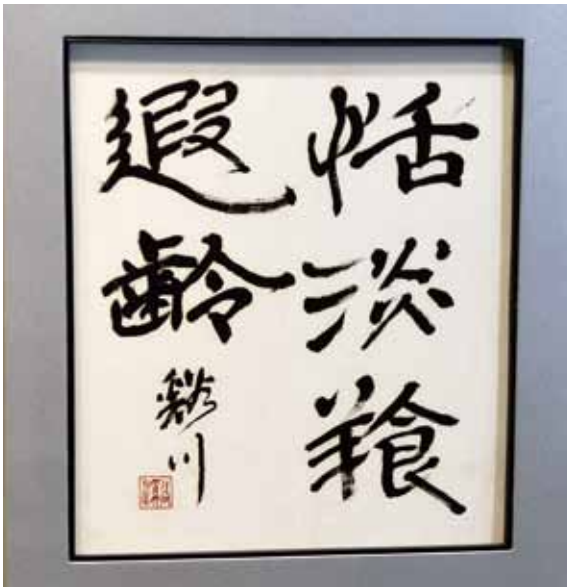 恬淡養
遐齢
谿川